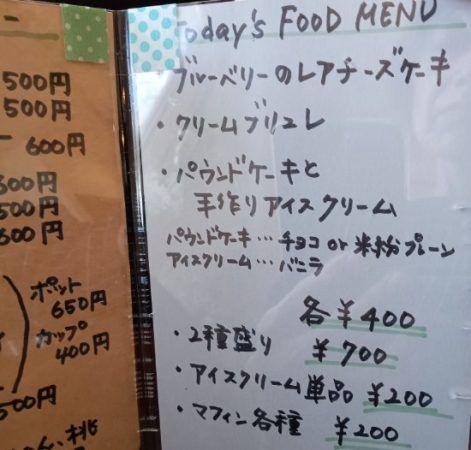 500円
500円
600円
600円
500円
600円
ポット
650円
カップ
400円
500円
桃
Today's FOOD MENU
ブルーベリーのレアチーズケーキ
・クリームブリュレ
・パウンドケーキと
手作りアイスクリーム
パウンドケーキ…チョコ or 米粉プレーン
アイスクリーム…バニラ
各¥400
・2種盛り ¥700
・アイスクリーム単品 ¥200
・マフィン各種 ¥200